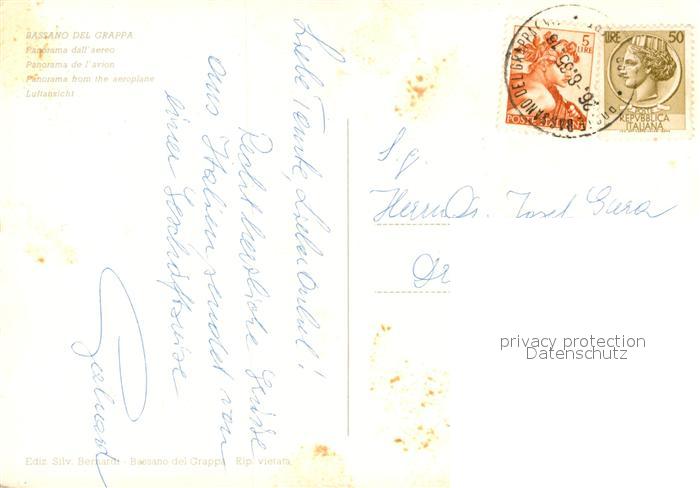 BASSANO DEL GRAPPA
Panorama dall'aereo
Panorama de l'avion
Panorama from the aeroplane
Luftansicht
Liebe Tante, Lieber Onkel!
Recht herzliche Grüsse
aus Italien sendet von
einer Geschäftsreise
Gerhard
Ediz. Silv. Bernardi - Bassano del Grappa Rip. vietata
5
LIRE
POSTE ITALIANE
LIRE 50
POSTE
REPVBBLICA
ITALIANA
BASSANO DEL GRAPPA
S.g.
Herrn Dr. Josef
privacy protection
Datenschutz